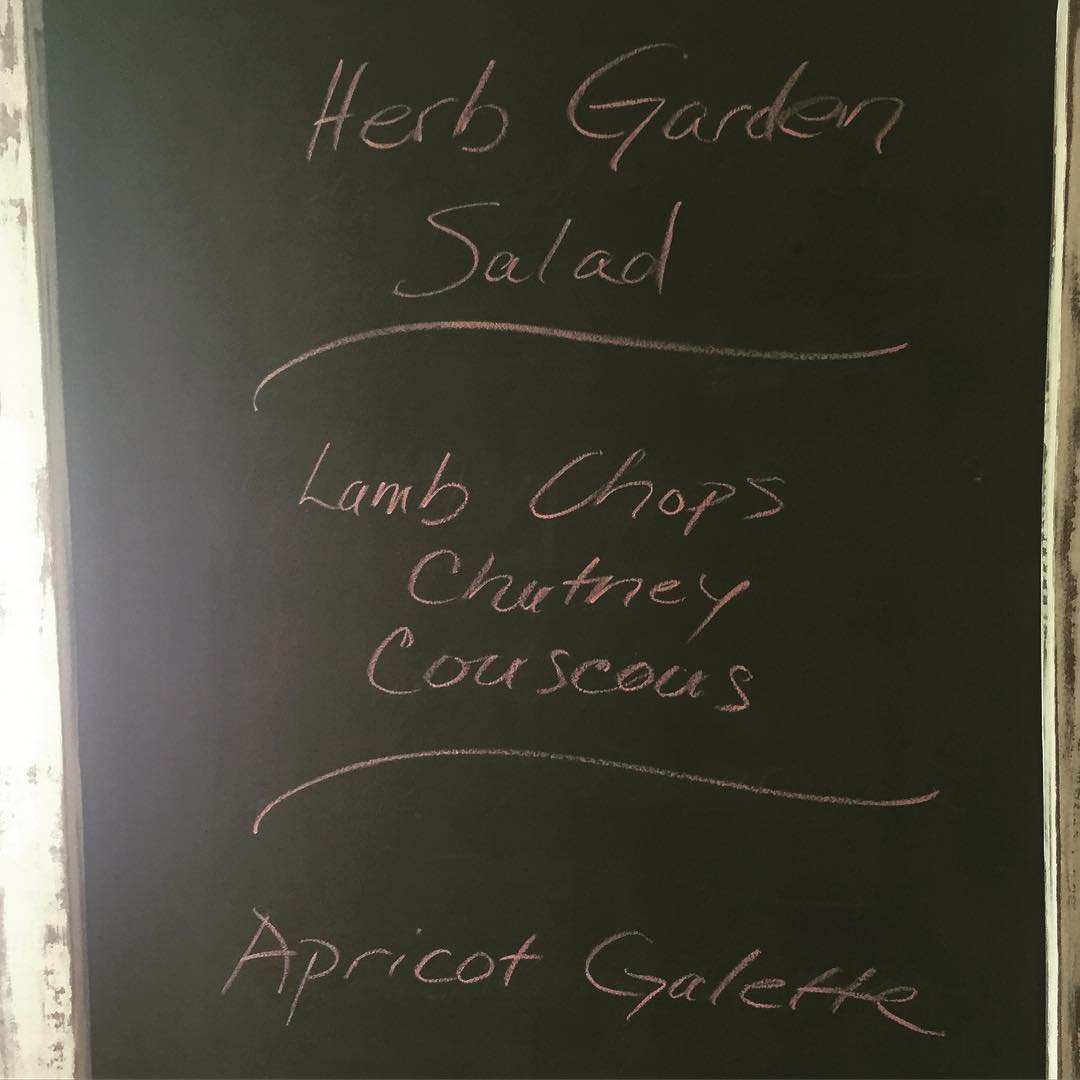 Herb Garden
Salad
Lamb Chops
Chutney
Couscous
Apricot Galette